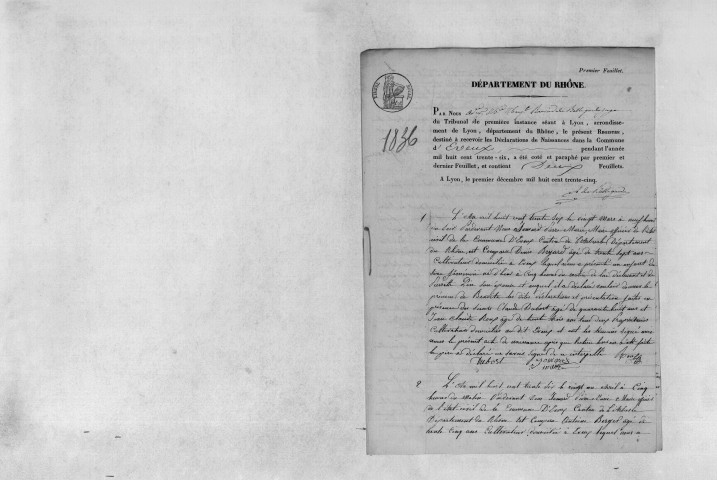 Premier Feuillet.
DÉPARTEMENT DU RHÔNE.
1836
PAR NOUS
du Tribunal de première instance séant à Lyon, arrondisse-
ment de Lyon, département du Rhône, le présent REGISTRE,
destiné à recevoir les Déclarations de Naissances dans la Commune
d'Eveux, pendant l'année
mil huit cent trente-six, a été coté et paraphé par premier et
dernier Feuillet, et contient Deux Feuillets.
A Lyon, le premier décembre mil huit cent trente-cinq.
1
L'An mil huit cent trente six le vingt Mars à neuf heures
du Soir Pardevant Nous Maire officier de l'état
civil de la Commune D'Eveux Canton de L'Arbresle Département
du Rhône, est Comparu Bryard âgé de trente sept ans
Cultivateur domicilié à Eveux lequel nous a présenté un enfant du
Sexe féminin né d'hier à Cinq heures du matin de lui déclarant et de
son épouse et auquel il a déclaré vouloir donner le
prénom de les dites déclaration et présentation faites en
présence des Sieurs Claude Dubost âgé de quarante huit ans et
Jean Claude âgé de trente trois ans tous deux Propriétaires
Cultivateurs domiciliés au dit Eveux et ont les témoins signé avec
nous le présent acte de naissance après que lecture leur en a été faite
le père a déclaré ne savoir signer de ce interpellé
Dubost
maire
2
L'An mil huit cent trente six le vingt un avril à Cinq
heures du Matin Pardevant Nous Maire officier
de l'état civil de la Commune D'Eveux Canton de L'Arbresle
Département du Rhône est Comparu Antoine Berger âgé de
trente Cinq ans Cultivateur domicilié à Eveux lequel nous a